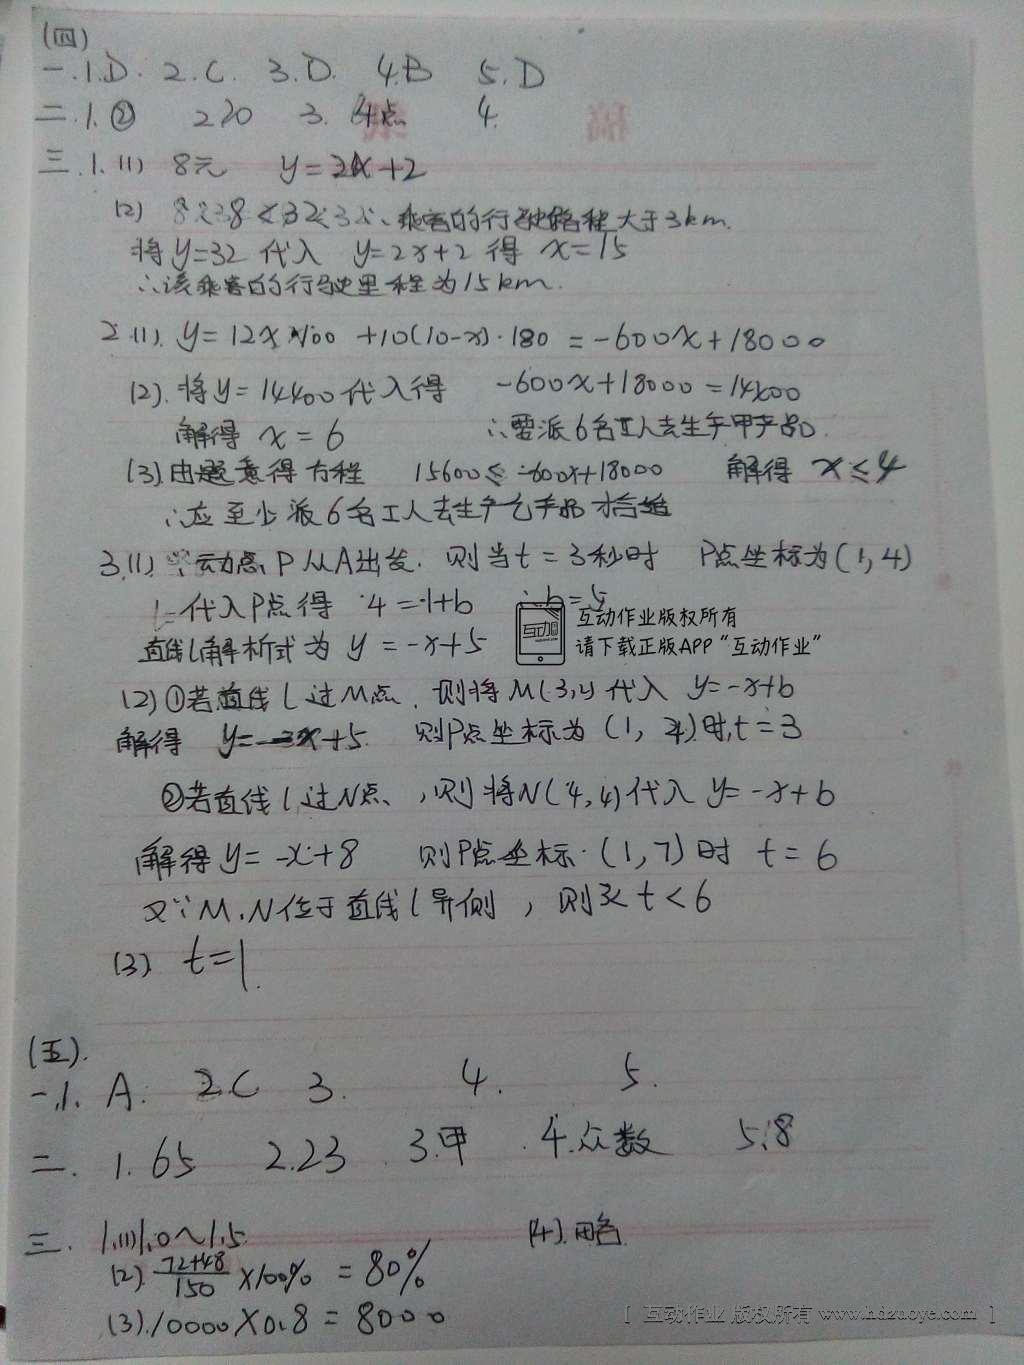 (四)
一.1.D. 2.C. 3.D. 4.B 5.D
二.1.② 2 20 3. 4点 4.
三.1.(1) 8元 y=2x+2
(2) 8<32 ∴乘客的行驶路程大于3km.
将y=32代入 y=2x+2得 x=15
∴该乘客的行驶里程为15km.
2.(1). y=12x·100+10(10-x)·180=-600x+18000
(2).将y=14400代入得 -600x+18000=14400
解得 x=6 ∴要派6名工人去生产甲产品.
(3).由题意得方程 15600≤-600x+18000 解得 x≤4
∴应至少派6名工人去生产乙产品才合适
3.(1) ∵动点P从A出发.则当t=3秒时 P点坐标为(1,4)
代入P点得 4=-1+b ∴b=5
互动作业版权所有
直线l解析式为 y=-x+5
请下载正版APP“互动作业”
(2)①若直线l过M点.则将M(3,2)代入 y=-x+b
解得 y=-x+5. 则P点坐标为(1,4)时,t=3
②若直线l过N点,则将N(4,4)代入 y=-x+b
解得y=-x+8 则P点坐标(1,7)时 t=6
又∵M.N位于直线l异侧,则3<t<6
(3) t=1.
(五).
一.1. A. 2.C 3. 4. 5.
二. 1.65 2.23 3.甲 4.众数 5.8
三. 1.(1)1.0~1.5 (4).略
(2). 72+48/150 ×100% = 80%
(3).10000×0.8=8000
[ 互动作业 版权所有 www.hdzuoye.com ]